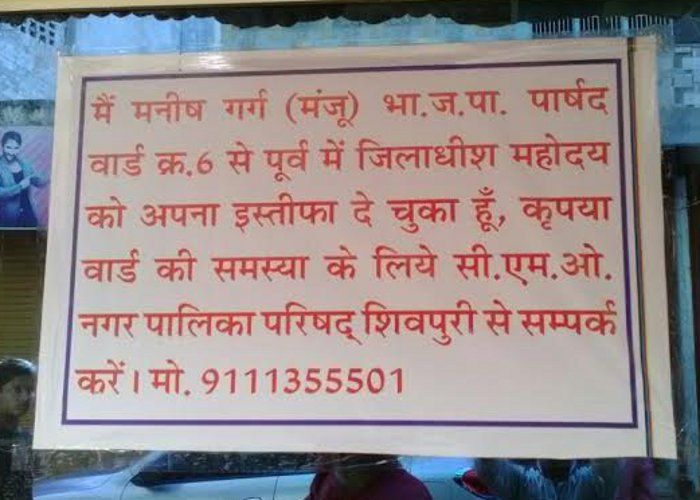 मैं मनीष गर्ग (मंजू) भा.ज.पा. पार्षद
वार्ड क्र.6 से पूर्व में जिलाधीश महोदय
को अपना इस्तीफा दे चुका हूँ, कृपया
वार्ड की समस्या के लिये सी.एम.ओ.
नगर पालिका परिषद् शिवपुरी से सम्पर्क
करें। मो. 9111355501